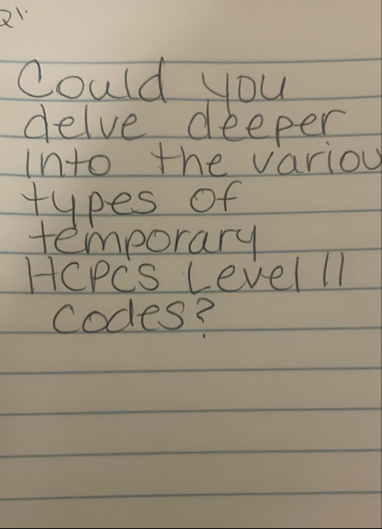 Q1.
Could you
delve deeper
into the variou
types of
temporary
HCPCS Level II
codes?